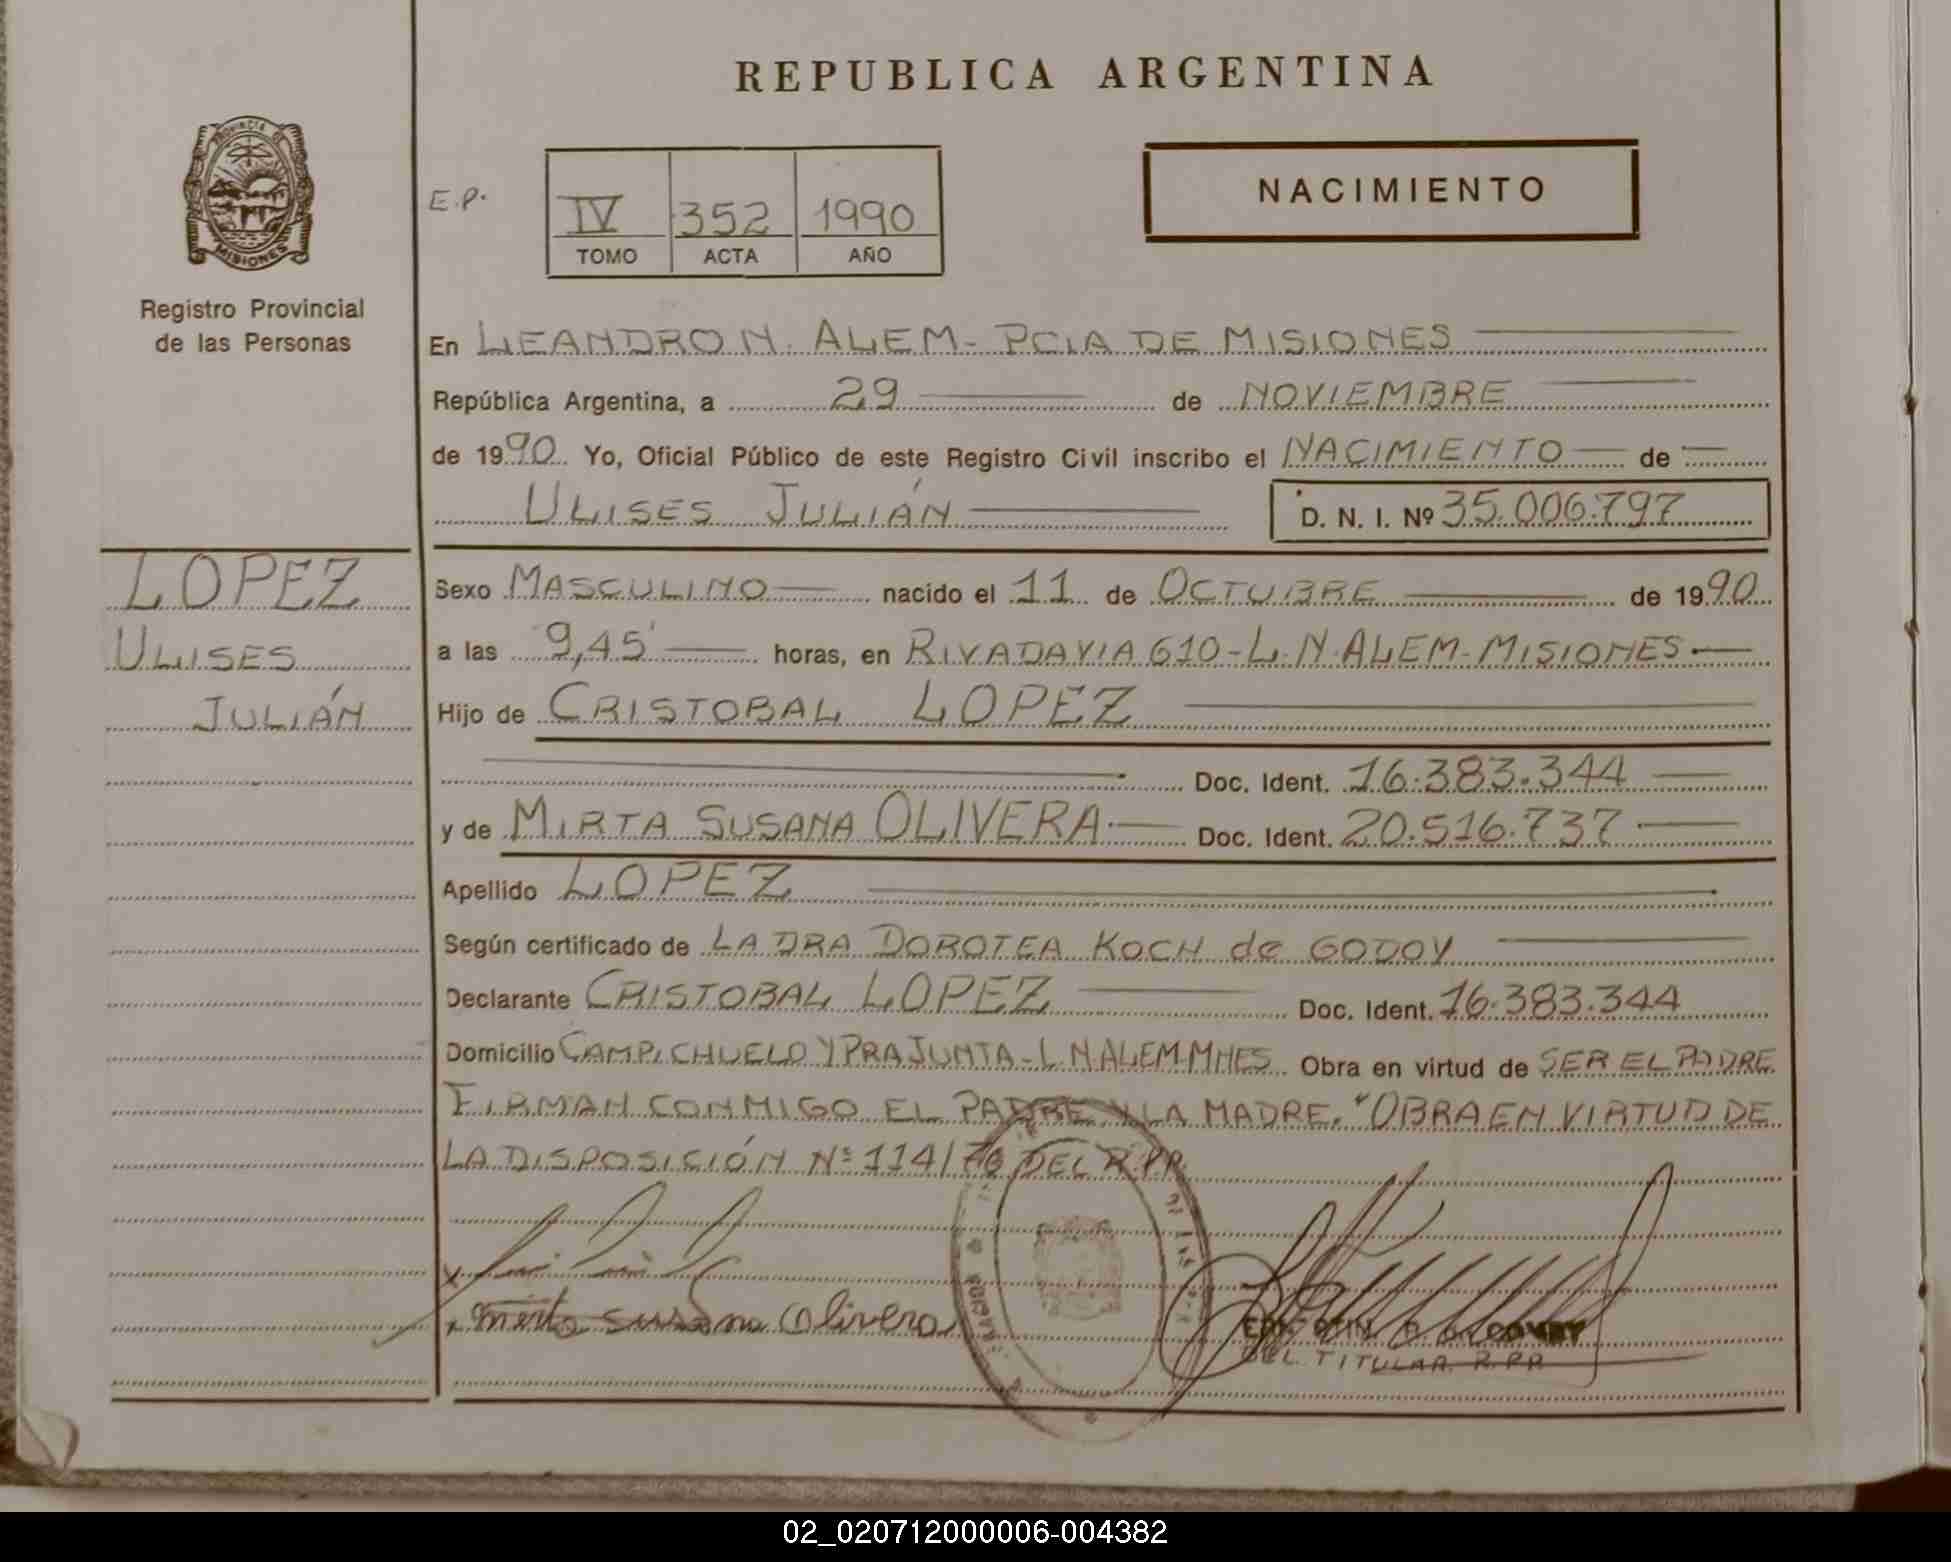 REPUBLICA ARGENTINA
PROVINCIA DE
MISIONES
Registro Provincial
de las Personas
E.P.
IV 352 1990
TOMO ACTA AÑO
NACIMIENTO
En LEANDRO N. ALEM - PCIA DE MISIONES
República Argentina, a 29 de NOVIEMBRE
de 1990 Yo, Oficial Público de este Registro Civil inscribo el NACIMIENTO de
ULISES JULIÁN D. N. I. Nº 35.006.797
LOPEZ
ULISES
JULIÁN
Sexo MASCULINO nacido el 11 de OCTUBRE de 1990
a las 9,45 horas, en RIVADAVIA 610 - L. N. ALEM - MISIONES
Hijo de CRISTOBAL LOPEZ
Doc. Ident. 16.383.344
y de MIRTA SUSANA OLIVERA Doc. Ident. 20.516.737
Apellido LOPEZ
Según certificado de LA DRA DOROTEA KOCH de GODOY
Declarante CRISTOBAL LOPEZ Doc. Ident. 16.383.344
Domicilio CAMPICHUELO Y PRA JUNTA - L. N. ALEM-MNES Obra en virtud de SER EL PADRE
FIRMAN CONMIGO EL PADRE Y LA MADRE. "OBRA EN VIRTUD DE
LA DISPOSICIÓN Nº 114/76 DEL R.P.P.
x
x Mirta Susana Olivera
DEL. TITULAR R.P.P.
02_020712000006-004382